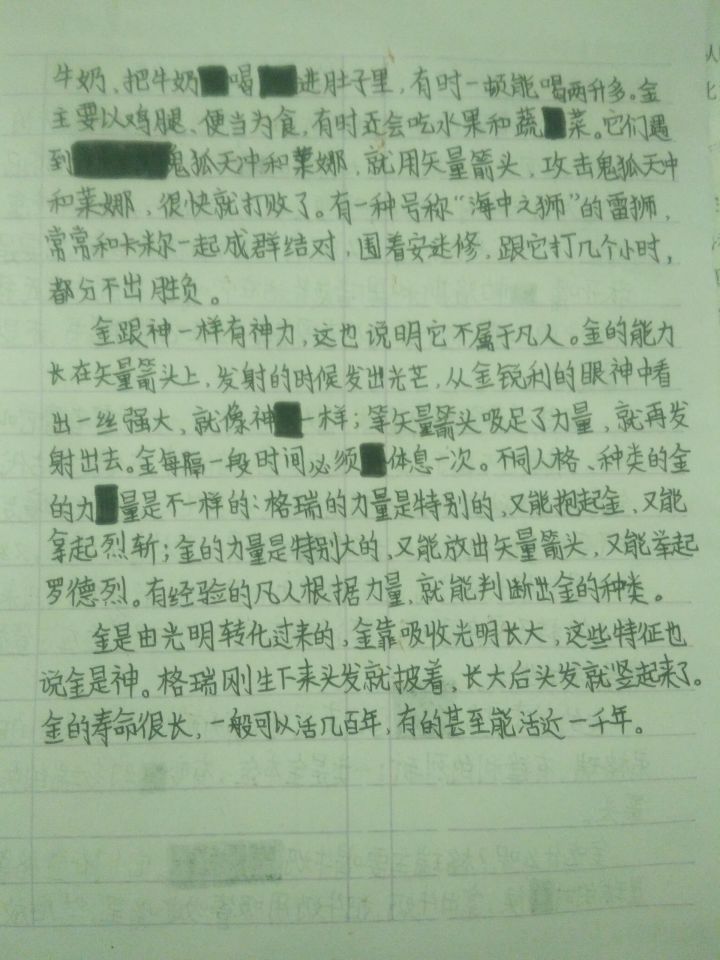 牛奶、把牛奶喝进肚子里,有时一顿能喝两升多。金
主要以鸡腿、便当为食,有时还会吃水果和蔬菜。它们遇
到鬼狐天冲和莱娜,就用矢量箭头,攻击鬼狐天冲
和莱娜,很快就打败了。有一种号称“海中之狮”的雷狮,
常常和卡米尔一起成群结对,围着安迷修,跟它打几个小时,
都分不出胜负。
金跟神一样有神力,这也说明它不属于凡人。金的能力
长在矢量箭头上,发射的时候发出光芒,从金锐利的眼神中看
出一丝强大、就像神一样;等矢量箭头吸足了力量,就再发
射出去。金每隔一段时间必须体息一次。不同人格、种类的金
的力量是不一样的:格瑞的力量是特别的,又能抱起金,又能
拿起烈斩;金的力量是特别大的,又能放出矢量箭头,又能举起
罗德烈。有经验的凡人根据力量,就能判断出金的种类。
金是由光明转化过来的,金靠吸收光明长大,这些特征也
说金是神。格瑞刚生下来头发就披着,长大后头发就竖起来了。
金的寿命很长,一般可以活几百年,有的甚至能活近一千年。